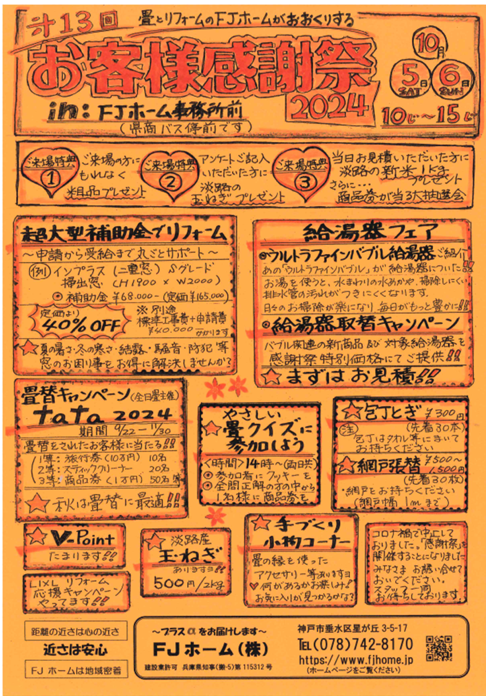 才13回 畳とリフォームのFJホームがおおくりする
お客様感謝祭
2024
10月
5日 SAT 6日 SUN
10じ~15じ
in: FJホーム事務所前
(県商バス停前です)
ご来場特典
①
ご来場の方に
もれなく
粗品プレゼント
ご来場特典
②
アンケートご記入
いただいた方に
淡路の
玉ねぎプレゼント
ご来場特典
③
当日お見積いただいた方に
淡路の新米1kgプレゼント
さらに…
商品券が当る大抽選会
超大型補助金でリフォーム
~申請から受給まで丸ごとサポート~
(例)インプラス(二重窓)Sグレード
掃出窓(H1900×W2000)
◎補助金¥68,000-(定価¥165,000)
定価より
40%OFF
※別途
標準工事費+申請費
¥60,000
かかります
☆夏の暑さ・冬の寒さ・結露・騒音・防犯等
窓のお困り事をお得に解決しませんか?
給湯器フェア
◎ウルトラファインバブル給湯器ご紹介
あの"ウルトラファインバブル"が給湯器についた!!
お湯を使うと、水まわりの水あかや、掃除しにくい
排水管の汚れがつきにくくなります。
日々のお掃除が楽になり毎日がもっと豊かに!!
◎給湯器取替キャンペーン
バブル関連の新商品及び対象給湯器を
感謝祭特別価格にてご提供!!
☆まずはお見積!!
畳替キャンペーン(全日畳主催)
tata 2024
期間 9/22~11/30
畳替をされたお客様に当たる!!
1等:旅行券(10万円) 10名
2等:スティッククリーナー 20名
3等:商品券(1万円) 50名
☆秋は畳替に最適!!
やさしい
☆畳クイズに
参加しよう
<時間>14時~(両日共)
◎参加者に クッキーを
◎全問正解の方の中から
1名様に商品券を
☆包丁とぎ ¥300円
(注) (先着30本)
包丁はタオル等にまいて
お持ちください
☆網戸張替 ¥500~
1,500円
(先着30枚)
網戸をお持ちください
(網戸幅1mまで)
☆V Point
たまります!!
LIXILリフォーム
応援キャンペーン
やってます!!
☆淡路産
玉ねぎ
あります!!
500円/2kg
☆手づくり
小物コーナー
畳の縁を使った
アクセサリー等あります
♡何があるかお楽しみ♪
お気に入りが見つかるかな?
コロナ禍で中止して
おりました。感謝祭を
開催することになりました
みなさまお誘い合せて
おいでください。
スタッフ一同
お待ちしております。
距離の近さは心の近さ
近さは安心
FJ ホームは地域密着
~プラスαをお届けします~
FJホーム(株)
建設業許可 兵庫県知事(般-5)第115312号
神戸市垂水区星が丘 3-5-17
TEL(078)742-8170
https://www.fjhome.jp
(ホームページをご覧ください)